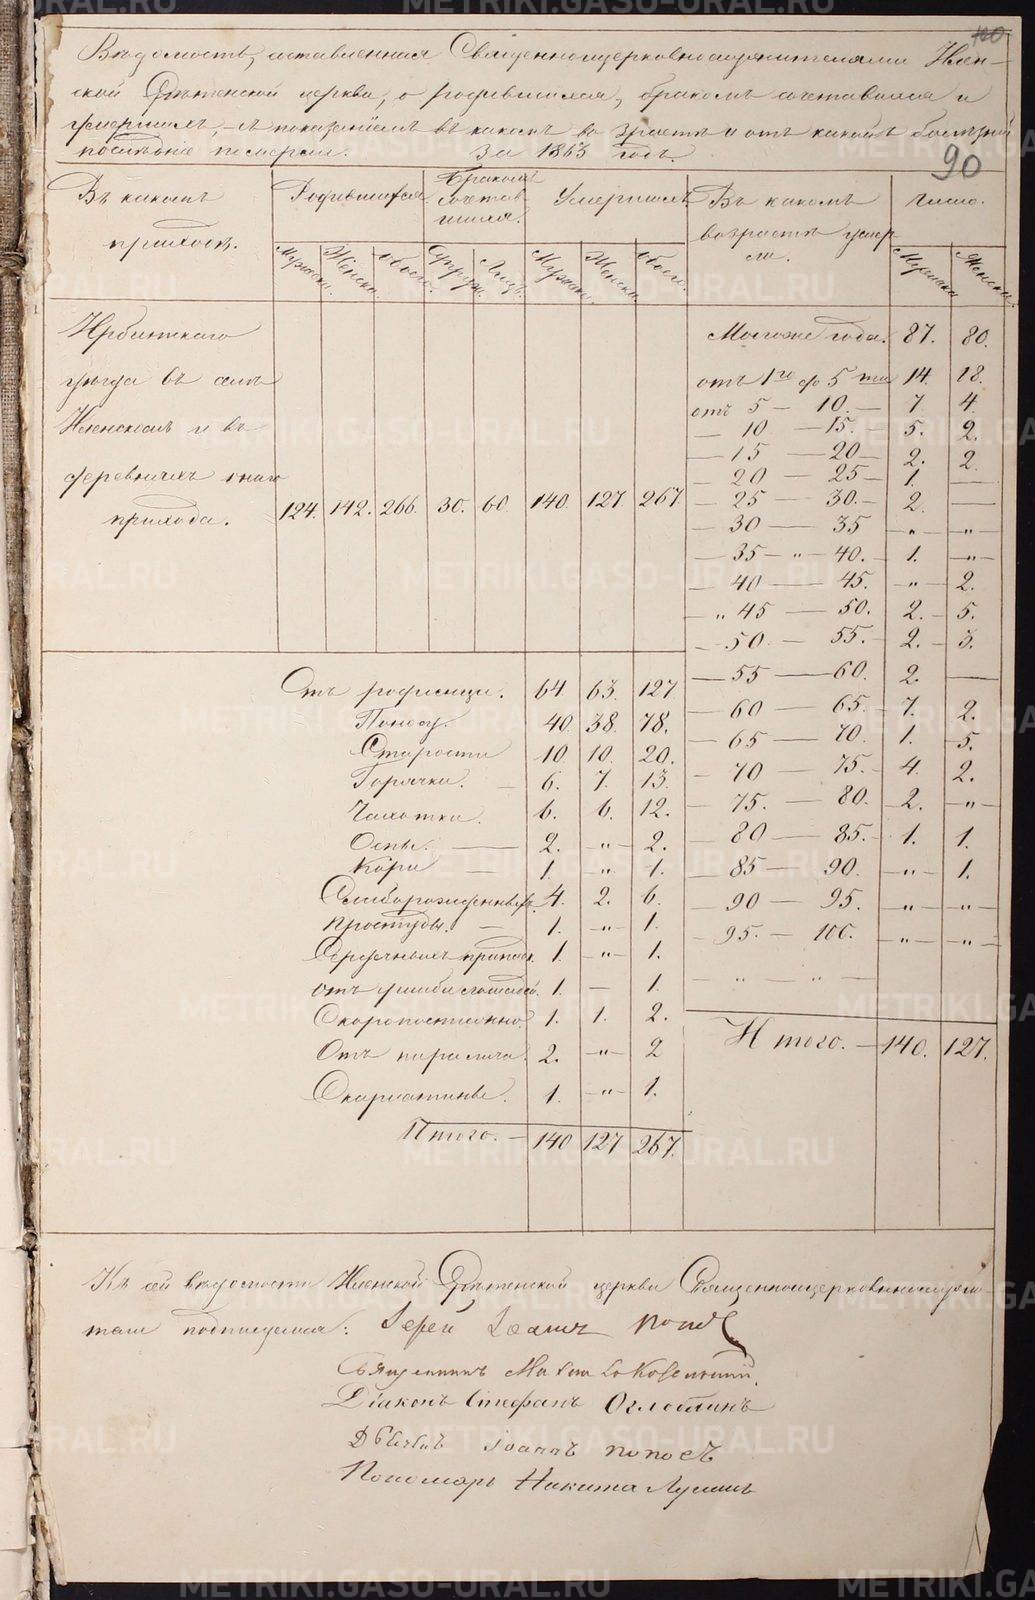 Вѣдомость, составленная Священноцерковнослужителями Клен-
ской Срѣтенской церкви, о родившихся, бракомъ сочетавшихся и
умершихъ, съ показаніемъ въ какомъ возрастѣ и отъ какой болѣзни
послѣдніе померли. За 1863 годъ.
100
90
Въ какомъ приходѣ.
Родившихся
Бракомъ сочетав шихся.
Умершихъ
Въ какомъ возрастѣ умер ли.
Число.
Мужска. Женска. Обоего. Супруж. Лицъ. Мужска. Женска. Обоего. Мужска Женска.
Ирбитскаго
уѣзда въ селѣ
Кленскомъ и въ
деревняхъ онаго
прихода. 124. 142. 266. 30. 60. 140. 127. 267.
Моложе года. 87. 80.
отъ 1го до 5ти 14. 18.
отъ 5 — 10. — 7 4.
— 10 — 15. 5. 2.
— 15 — 20 — 2. 2.
— 20 — 25 — 1. —
— 25 — 30. — 2. —
— 30 — 35 — „ — „ —
— 35 — „ — 40. — 1. — „ —
— 40 — 45. — „ — 2.
— „ 45 — 50. 2. — 5.
— 50 — 55. — 2. — 3.
— 55 — 60. 2. —
— 60 — 65. — 7. 2.
— 65 — 70. 1. 5.
— 70 — 75. — 4. 2.
— 75. — 80. — 2. — „ —
— 80 — 85. — 1. 1.
— 85 — 90. — „ — 1.
— 90 — 95. — „ — — „ —
— 95. — 100. — „ — — „ —
— „ — „ —
Итого. — 140. 127.
Отъ родимца. 64. 63. 127
Поносу. 40. 38. 78.
Старости 10. 10. 20.
Горячки. — 6. 7. 13.
Чахотки. 6. 6. 12.
Оспы. — 2. „ — 2.
Кори — 1. „ 1.
4. 2. 6.
Простуды. — 1. — „ — 1.
Сердечныхъ припад. 1. — „ — 1.
отъ ушиба лошадей. 1. — 1.
Скоропостижно 1. 1. 2.
Отъ паралича. 2. — „ — 2
Скарлатины. 1. — „ — 1.
Итого. — 140 127 267.
Къ сей вѣдомости Кленской Срѣтенской церкви Священноцерковнослужи-
тели подписуемся: Іерей Іоаннъ Поповъ
Священникъ
Діаконъ Стефанъ Оглоблинъ
Дьячекъ Іоаннъ Поповъ
Пономарь Никита
METRIKI.GASO-URAL.RU